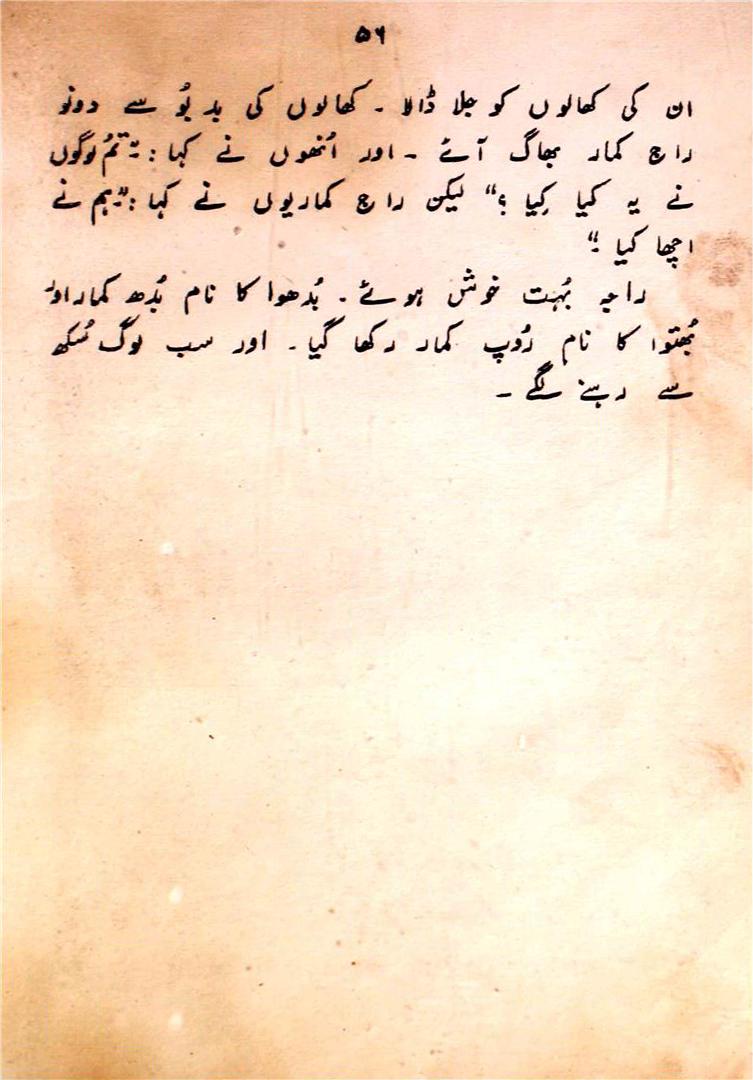 ۵۶
ان کی کھالوں کو جلا ڈالا ۔ کھالوں کی بد بُو سے دونو
راج کمار بھاگ آئے ۔ اور اُنھوں نے کہا :۔ ”تُم لوگوں
نے یہ کیا کِیا ؟“ لیکن راج کماریوں نے کہا :۔ ”ہم نے
اچھا کیا ۔“
راجہ بُہت خوش ہوئے ۔ بُدھوا کا نام بُدھ کمار اور
بُھتوا کا نام رُوپ کمار رکھا گیا ۔ اور سب لوگ سُکھ
سے رہنے لگے ۔